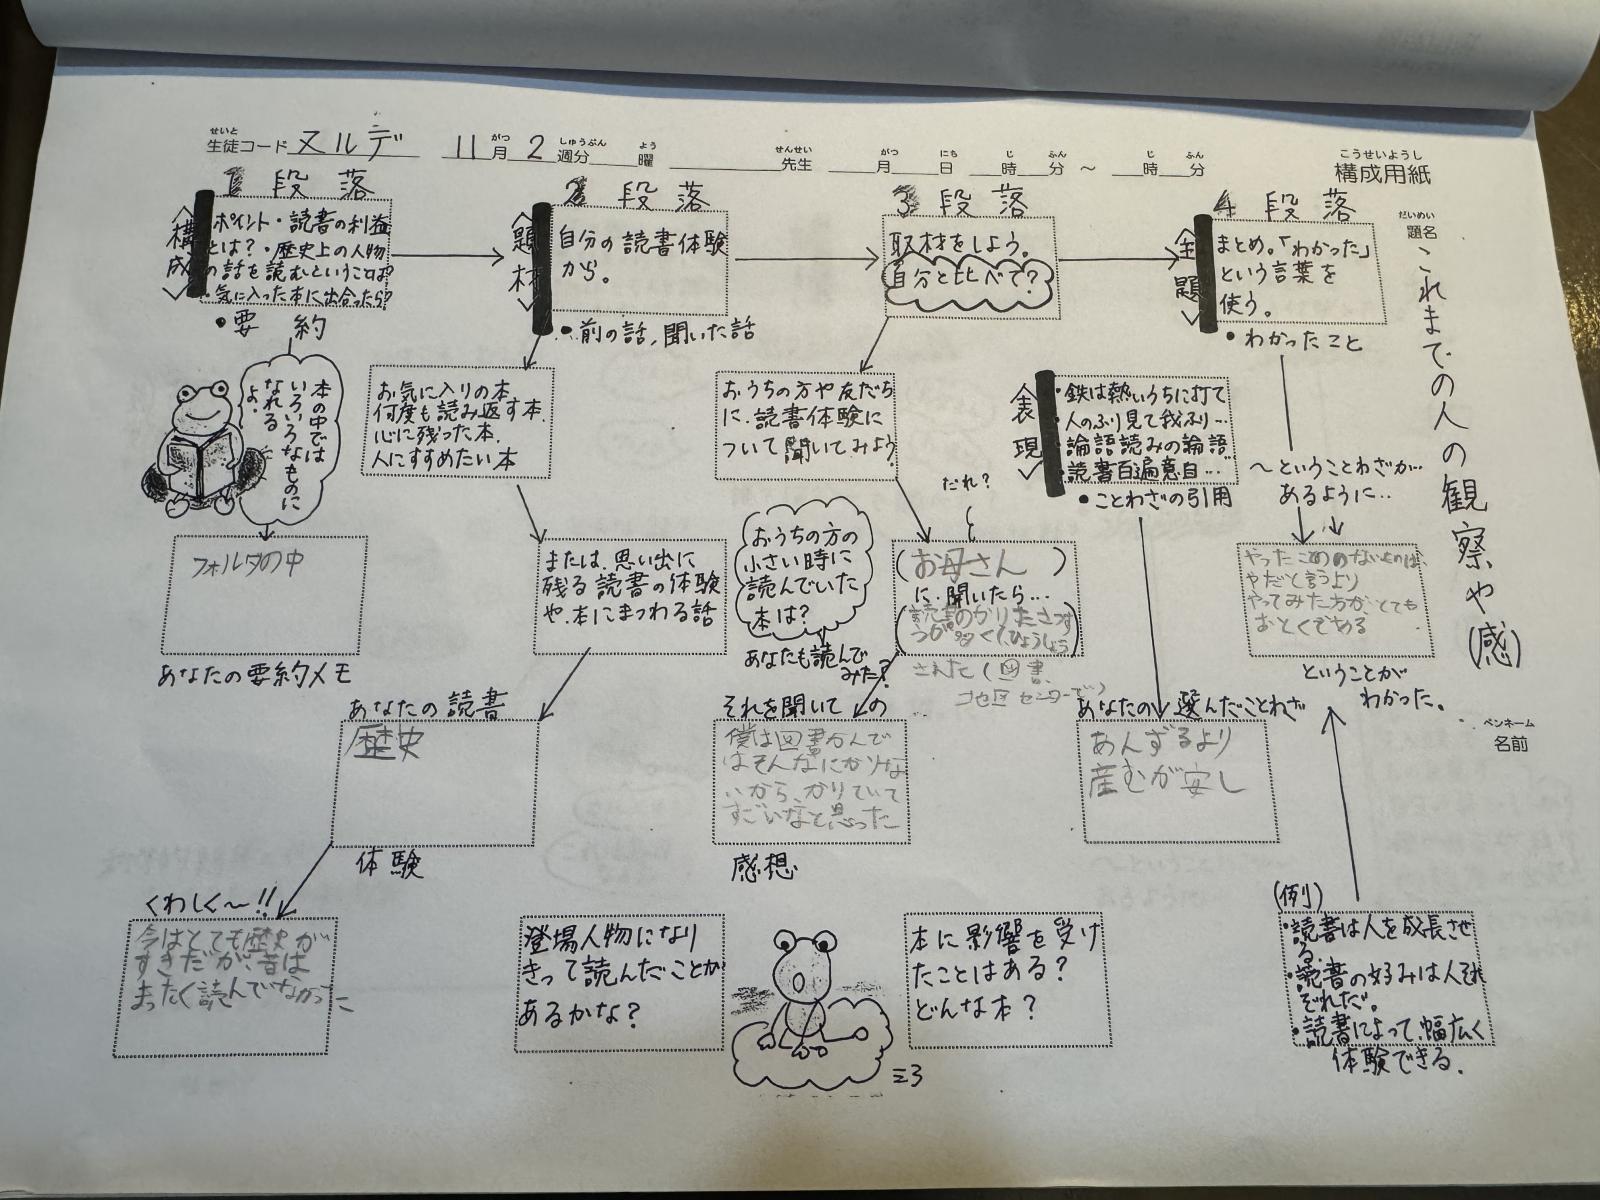 生徒コード ヌルデ 11月2週分 曜 先生 月 日 時 分 ~ 時 分
構成用紙
1段落
ポイント・読書の利益
とは?・歴史上の人物
の話を読むということは?
・気に入った本に出合ったら?
<構成>
・要約
本の中では
いろいろなものに
なれる
よ。
フォルダの中
あなたの要約メモ
2段落
<題材>
自分の読書体験
から。
・前の話,聞いた話
お気に入りの本
何度も読み返す本.
心に残った本.
人にすすめたい本
または、思い出に
残る読書の体験
や、本にまつわる話
あなたの読書
歴史
体験
くわしく~!!
今はとても歴史が
すきだが、昔は
まったく読んでいなかった
登場人物になり
きって読んだことが
あるかな?
3段落
取材をしよう。
自分と比べて?
おうちの方や友だち
に、読書体験に
ついて聞いてみよう
だれ?
おうちの方の
小さい時に
読んでいた
本は?
あなたも読んで
みた?
(お母さん)
に、聞いたら…
(読書のかりたさっす
うが多くてひょうしょう)
された(図書、
コセ区センターで)
それを聞いての
僕は図書かんで
はそんなにかりな
いから、かりていて
すごいなと思った
感想
本に影響を受け
たことはある?
どんな本?
ミ3
4段落
<主題>
まとめ。「わかった」
という言葉を
使う。
・わかったこと
<表現>
・鉄は熱いうちに打て
・人のふり見て我ふり…
・論語読みの論語
・読書百遍意自…
・ことわざの引用
あなたの選んだことわざ
あんずるより
産むが安し
~ということわざが…
あるように…
やだと言うより
やってみた方が、とても
おとくである
ということが
わかった。
(例)
・読書は人を成長させ
る。
・読書の好みは人それ
ぞれだ。
・読書によって、幅広く
体験できる.
題名
これまでの人の観察や(感)
ペンネーム
名前